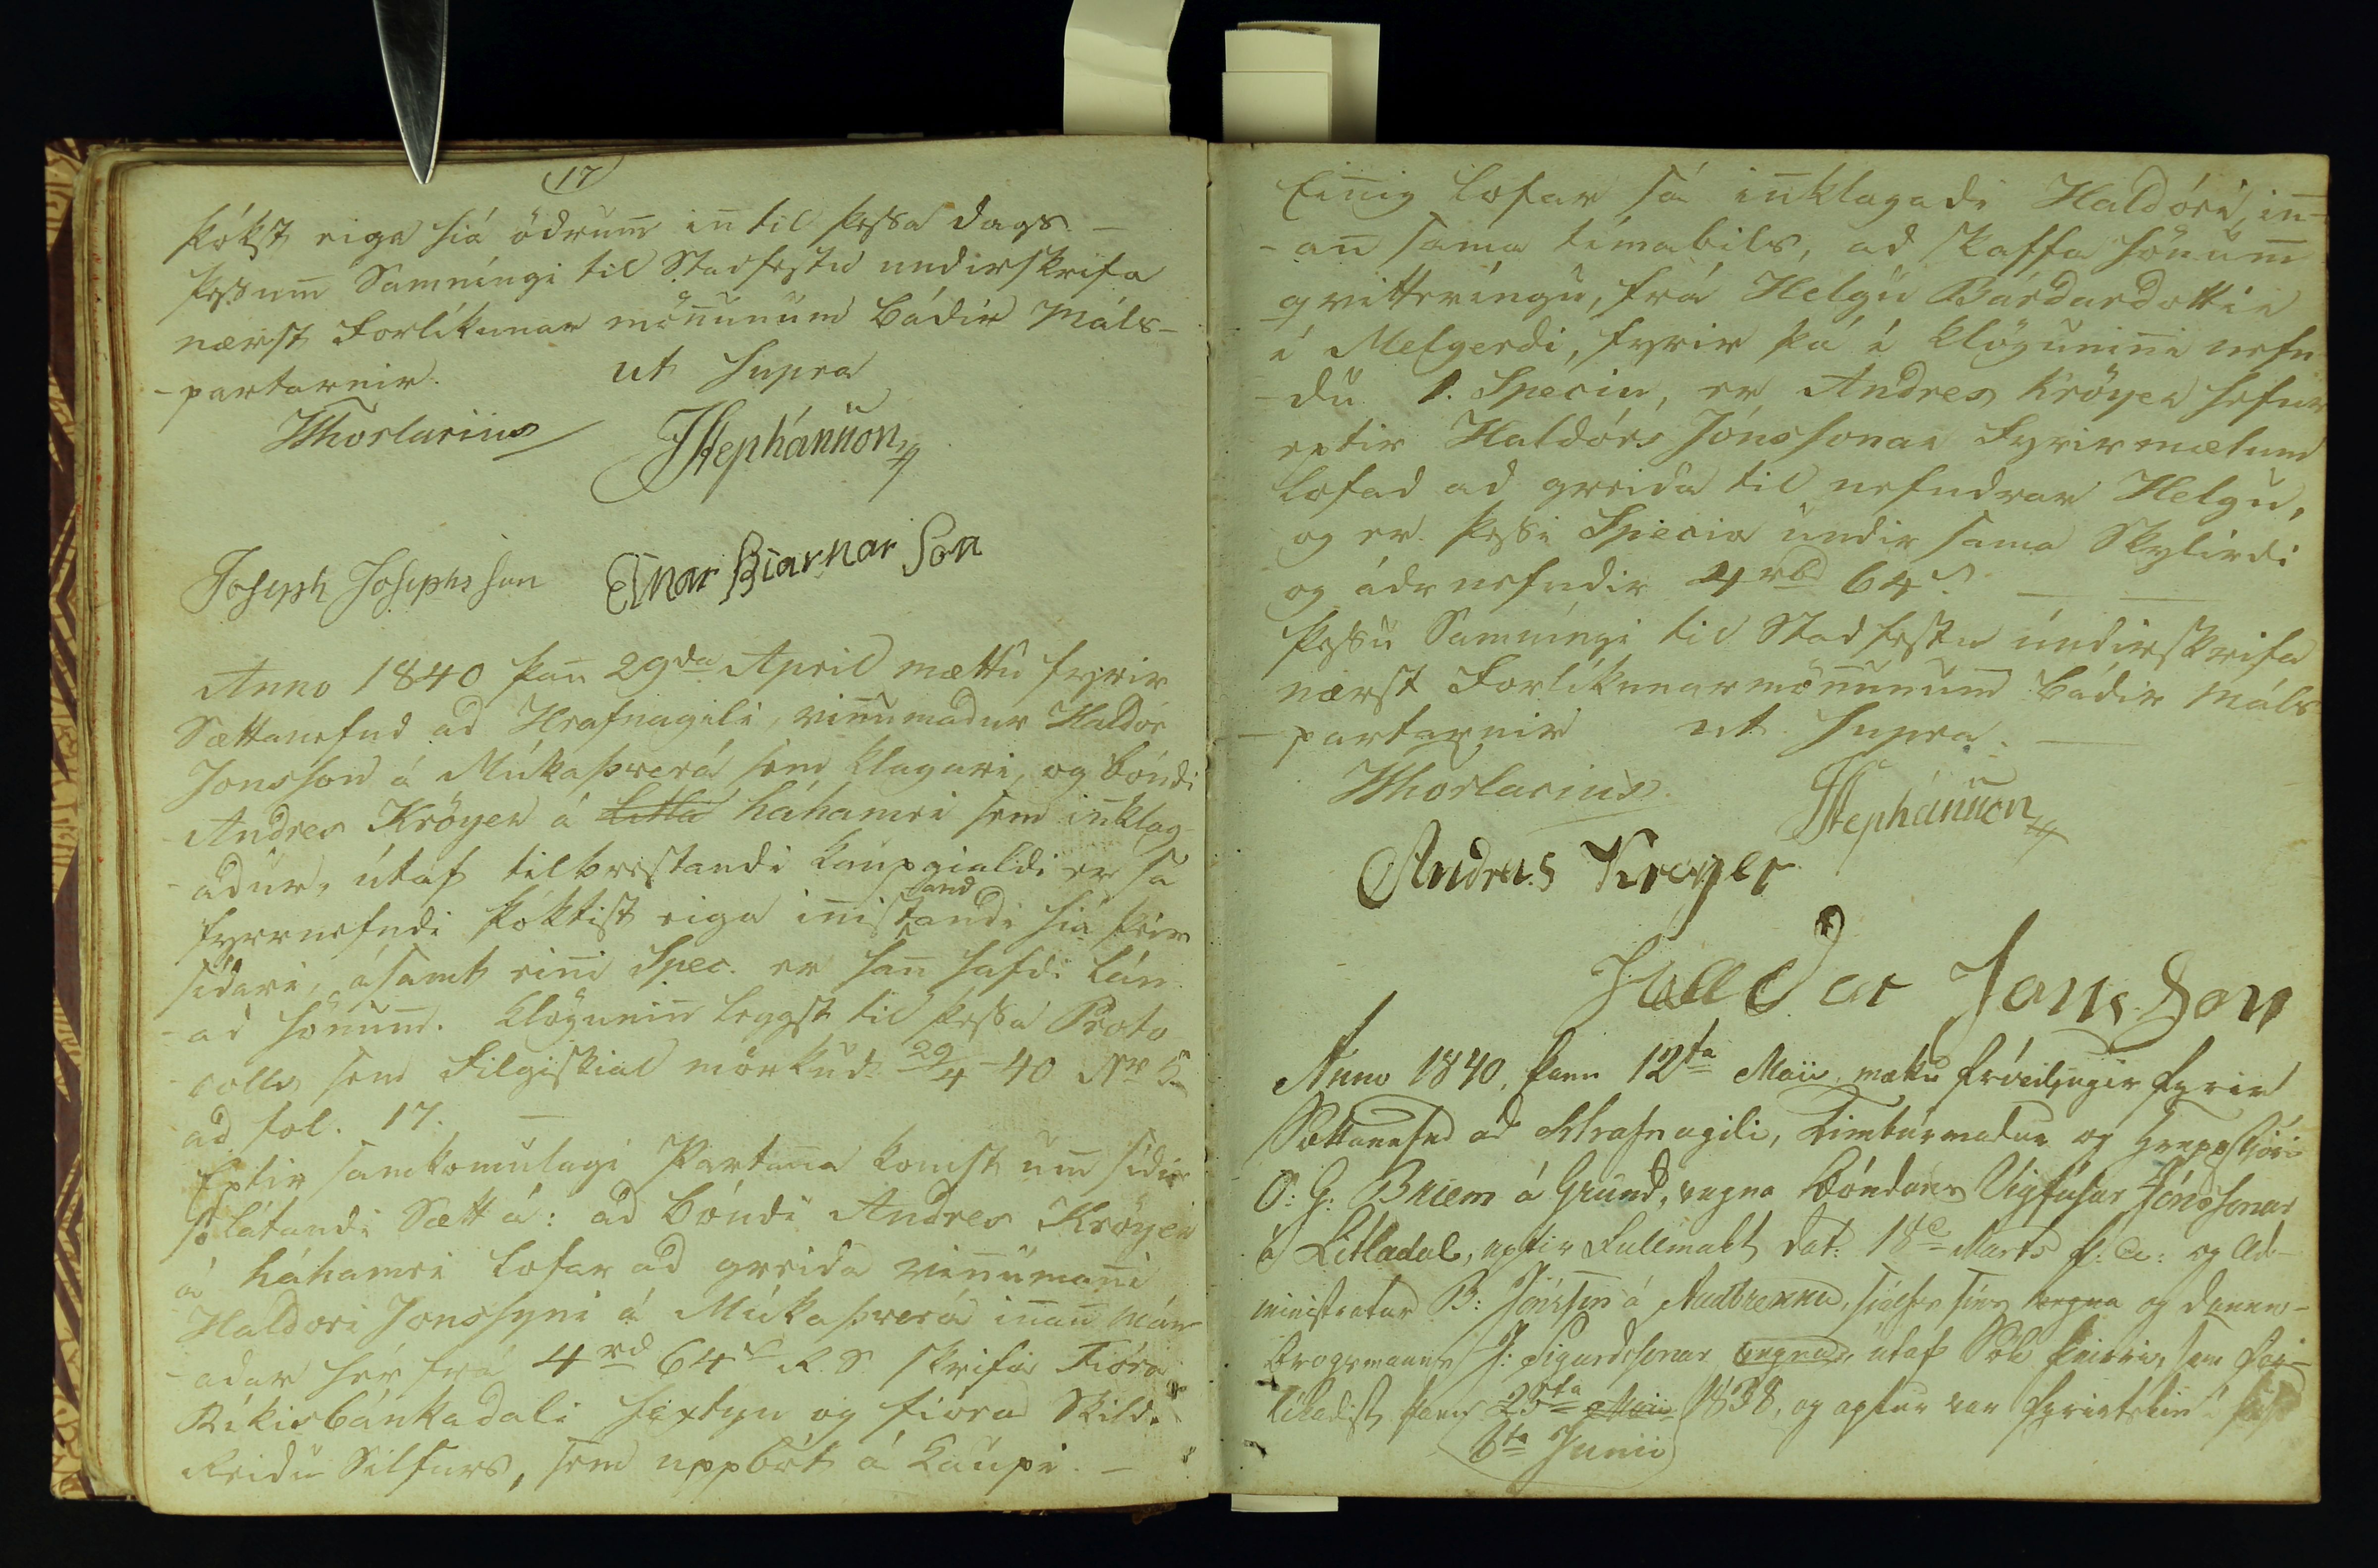 17
þókst eiga hiá ödrum̅ in̅ til þessa dags. –
þessum̅ Samníngi til Stadfestu undirskrifa
nærst Forlíkunar mön̅unum bádir Máls-
-partarnir. ut supra
Thorlacius JStephánsson
Joseph Josephsson Einar Biarnar Son
Anno 1840 þan̅ 29da April mættu fyrir
Sættanefnd ad Hrafnagili, vin̅umadur Haldór
Jonsson á Múkaþverá sem klagari, og bóndi
Andres Kröyer á Litla háhamri sem in̅klag-
-adur, útaf tilbrestandi kaupgialdi er sá
fyrrnefndi þóktist eiga in̅istandandi hiá þeim
sídari, ásamt ein̅i Spec. er han̅ hafdi lán
-ad hönum. Klögunin̅ leggst til þessa Proto
colls sem Filgiskial mörkud 29/4-40 Nr 5
ad fol. 17. –
Eptir samkomulagi Partan̅a komst um̅ sídir
so látandi Sætt á: ad bóndi Andres Kröyer
á háhamri lofar ad greida vin̅uman̅i
Haldori Jonssyni á Múkaþverá in̅an̅ Mán
-adar hér frá 4rd 64s R. S. skrifa Fióra
Ríkisbánkadali sextyu og fióra Skild.
Reidu Silfurs, sem uppbót á kaupi. –
Ein̅ig lofar sá in̅klagadi Haldóri, in̅-
-an̅ sama tímabils, ad skaffa hönum̅
qvitteríngu, frá Helgu Bárdardottir
í Melgerdi, fyrir þá í klögunin̅i nefn
-du 1. Speciu, er Andres Kröyer hefur
eptir Haldórs Jónssonar Fyrirmælum
lofad ad greida til nefndrar Helgu,
og er þessi Specia undir sama Skylirdi
og ádr nefndir 4rbd 64s. –
þessu Samníngi til Stadfestu undirskrifa
nærst Forlíkunarmön̅unum bádir Máls
-partarnir ut supra. –
Thorlacius JStephánsson
Andres Kreyer
Halldor Jons Son
Anno 1840, þann 12ta Maii mættu frívilugir fyrir
Sættanefnd ad Hrafnagili, Timburmadur og Hreppstjóri
O: G: Briem á Grund, vegna Bóndans Vigfúsar Jónssonar
á Litladal, eptir Fullmakt dat: 18d Marts h. a: og Ad-
ministrator B: Jónsson á Audbrekku, sjálfs síns vegna og Danne-
brogsmanns J: Sigurdssonar vegna, útaf Sök þeirri, sem for-
líkadist þann 25ta Maii 1838, og aptur var fyrirtekin í
6ta Junii